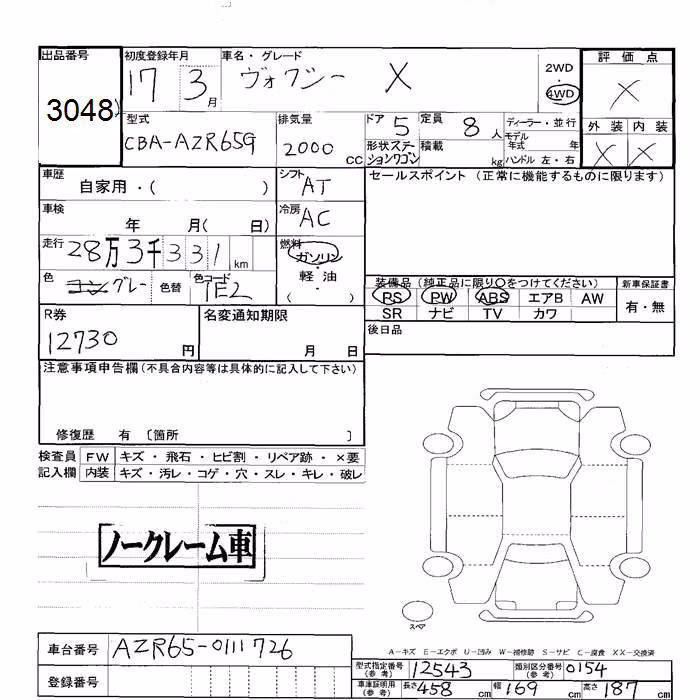 出品番号 初度登録年月 車名・グレード 評価点
3048 17 3月 ヴォクシー X 2WD・4WD X
型式 排気量 ドア 5 定員 8人 ディーラー・並行 外装 内装
CBA-AZR65G 2000cc 形状ステーションワゴン 積載 kg モデル年式 年 ハンドル 左・右 X X
車歴 自家用・( ) シフト AT セールスポイント (正常に機能するものに限ります)
車検 年 月( 日) 冷房 AC
走行 28万3千331km 燃料 ガソリン・軽油( )
色 グレー 色替 色コード 1E2
装備品 (純正品に限り○をつけてください) 新車保証書
PS PW ABS エアB AW 有・無
SR ナビ TV カワ
R券 12730円 名変通知期限 月 日 後日品
注意事項申告欄(不具合内容等は具体的に記入して下さい)
修復歴 有 〔箇所 〕
検査員 FW キズ・飛石・ヒビ割・リペア跡・×要
記入欄 内装 キズ・汚レ・コゲ・穴・スレ・キレ・破レ
ノークレーム車
スペア
A-キズ E-エクボ U-凹み W-補修跡 S-サビ C-腐食 XX-交換済
車台番号 AZR65-0111726
登録番号
型式指定番号(参考) 12543 類別区分番号(参考) 0154
車庫証明用(参考) 長さ 458cm 幅 169cm 高さ 187cm